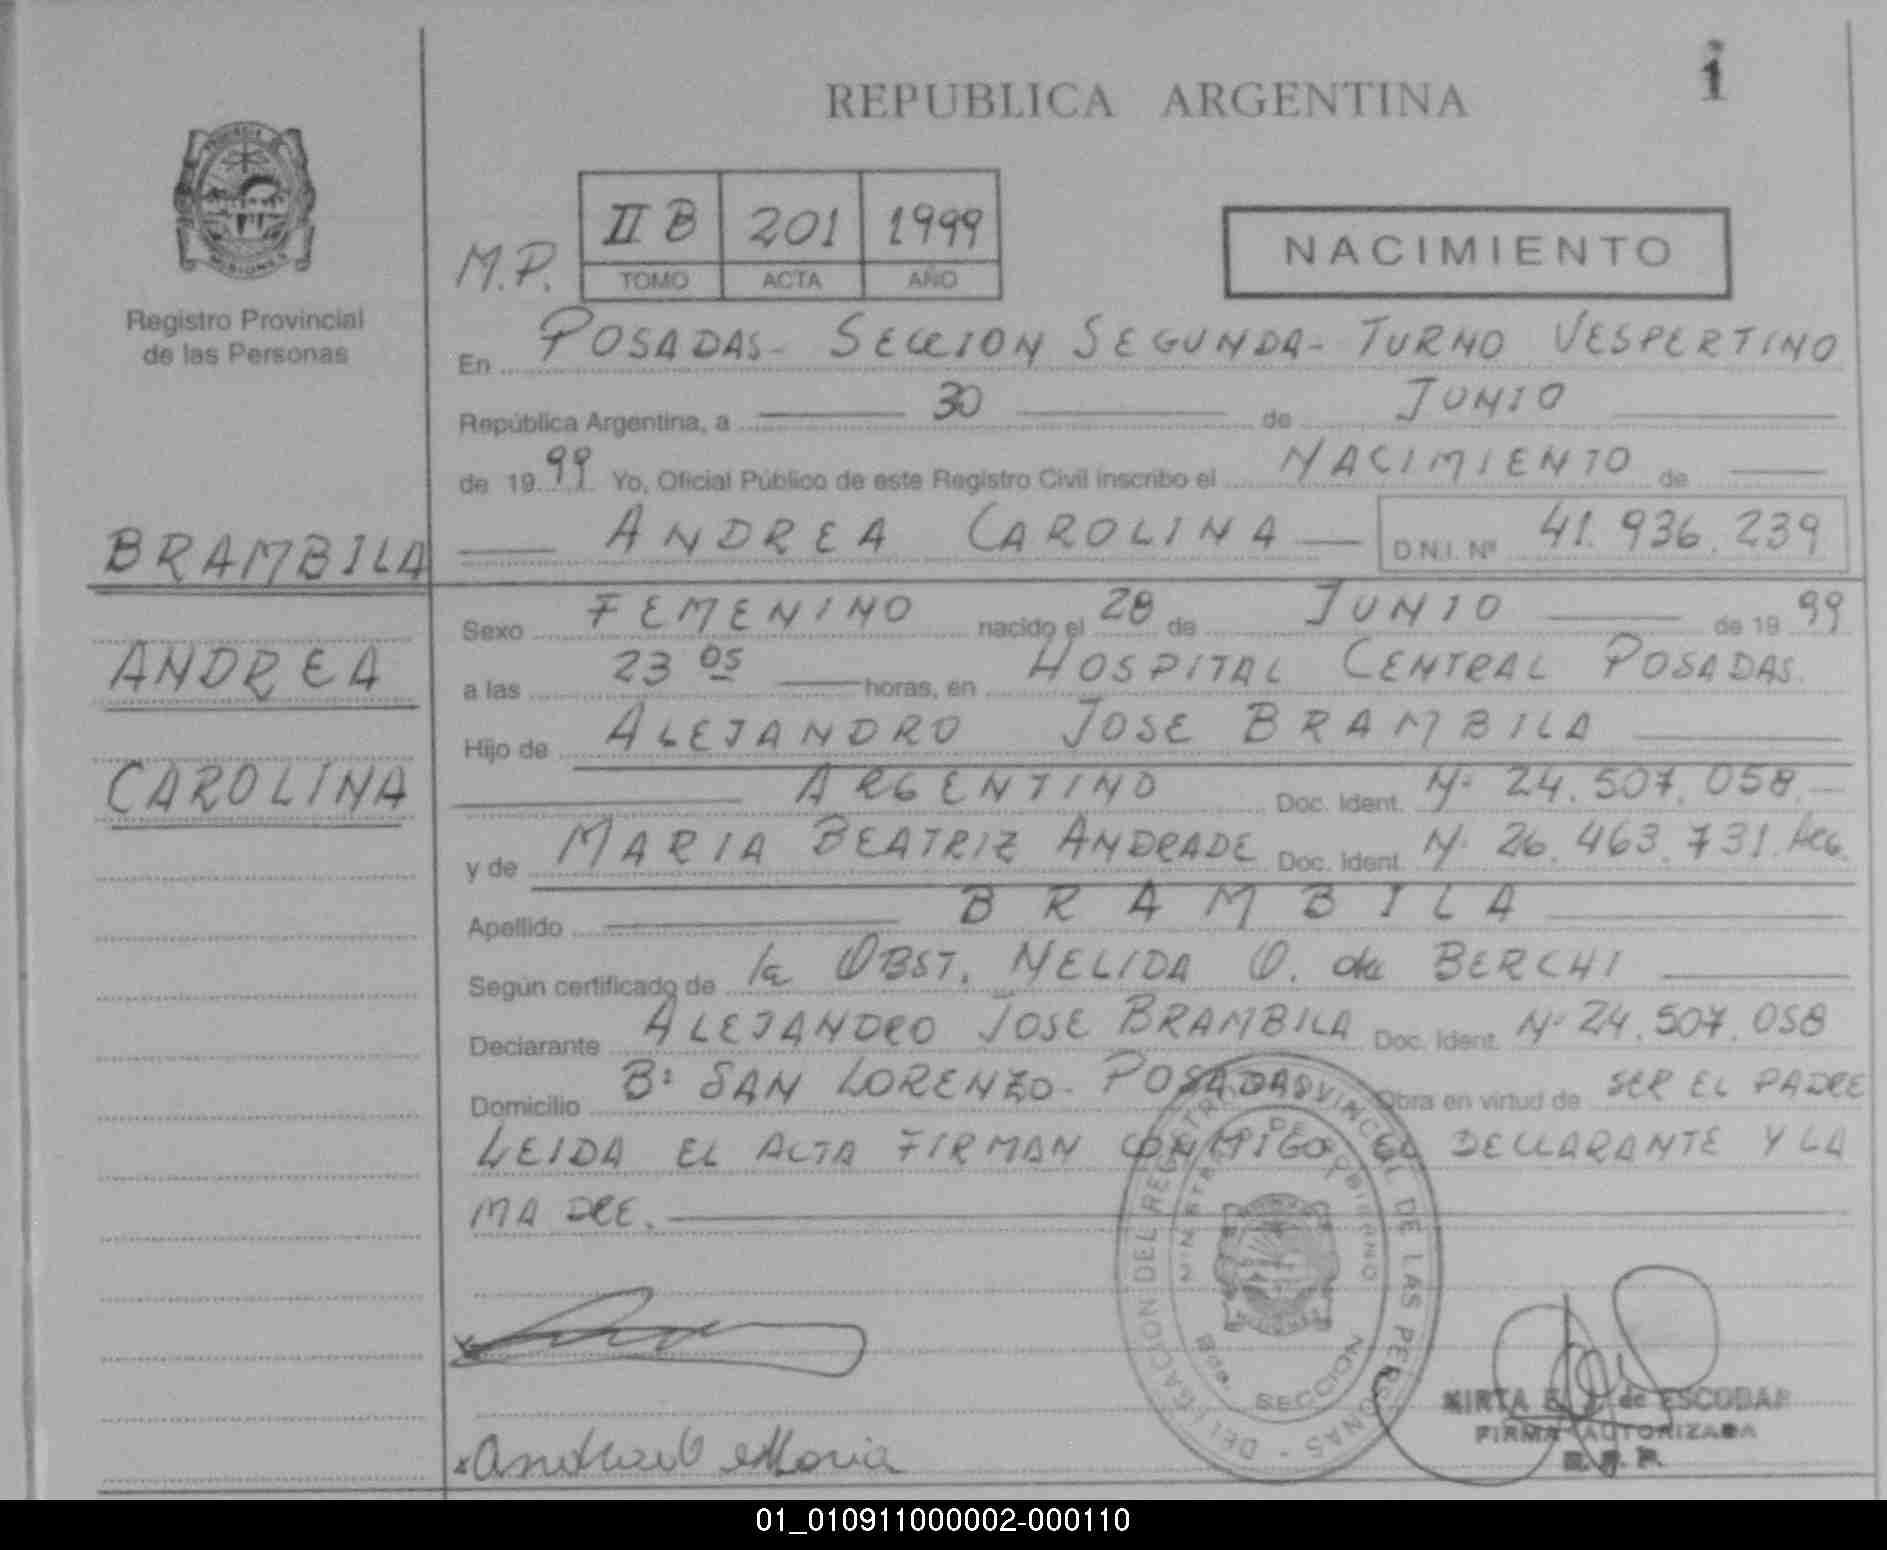 REPUBLICA ARGENTINA
1
PROVINCIA DE MISIONES
Registro Provincial
de las Personas
M.P.
II B 201 1999
TOMO ACTA AÑO
NACIMIENTO
En POSADAS- SECCION SEGUNDA- TURNO VESPERTINO
República Argentina, a 30 de JUNIO
de 1999 Yo, Oficial Público de este Registro Civil inscribo el NACIMIENTO de
ANDREA CAROLINA D.N.I. Nº 41.936.239
BRAMBILA
ANDREA
CAROLINA
Sexo FEMENINO nacido el 28 de JUNIO de 1999
a las 23 05 horas, en HOSPITAL CENTRAL POSADAS.
Hijo de ALEJANDRO JOSE BRAMBILA
ARGENTINO Doc. Ident. Nº 24.507.058.-
y de MARIA BEATRIZ ANDRADE Doc. Ident. Nº 26.463.731. ARG.
Apellido BRAMBILA
Según certificado de la OBST. NELIDA O. de BERCHI
Declarante ALEJANDRO JOSE BRAMBILA Doc. Ident. Nº 24.507.058
Domicilio Bº SAN LORENZO- POSADAS Obra en virtud de SER EL PADRE
LEIDA EL ACTA FIRMAN CONMIGO EL DECLARANTE Y LA
MADRE.
DELEGACION DEL REGISTRO PROVINCIAL DE LAS PERSONAS
MINISTERIO DE GOBIERNO
SECCION
MIRTA E. de ESCOBAR
FIRMA AUTORIZADA
R. P. P.
Maria
01_010911000002-000110